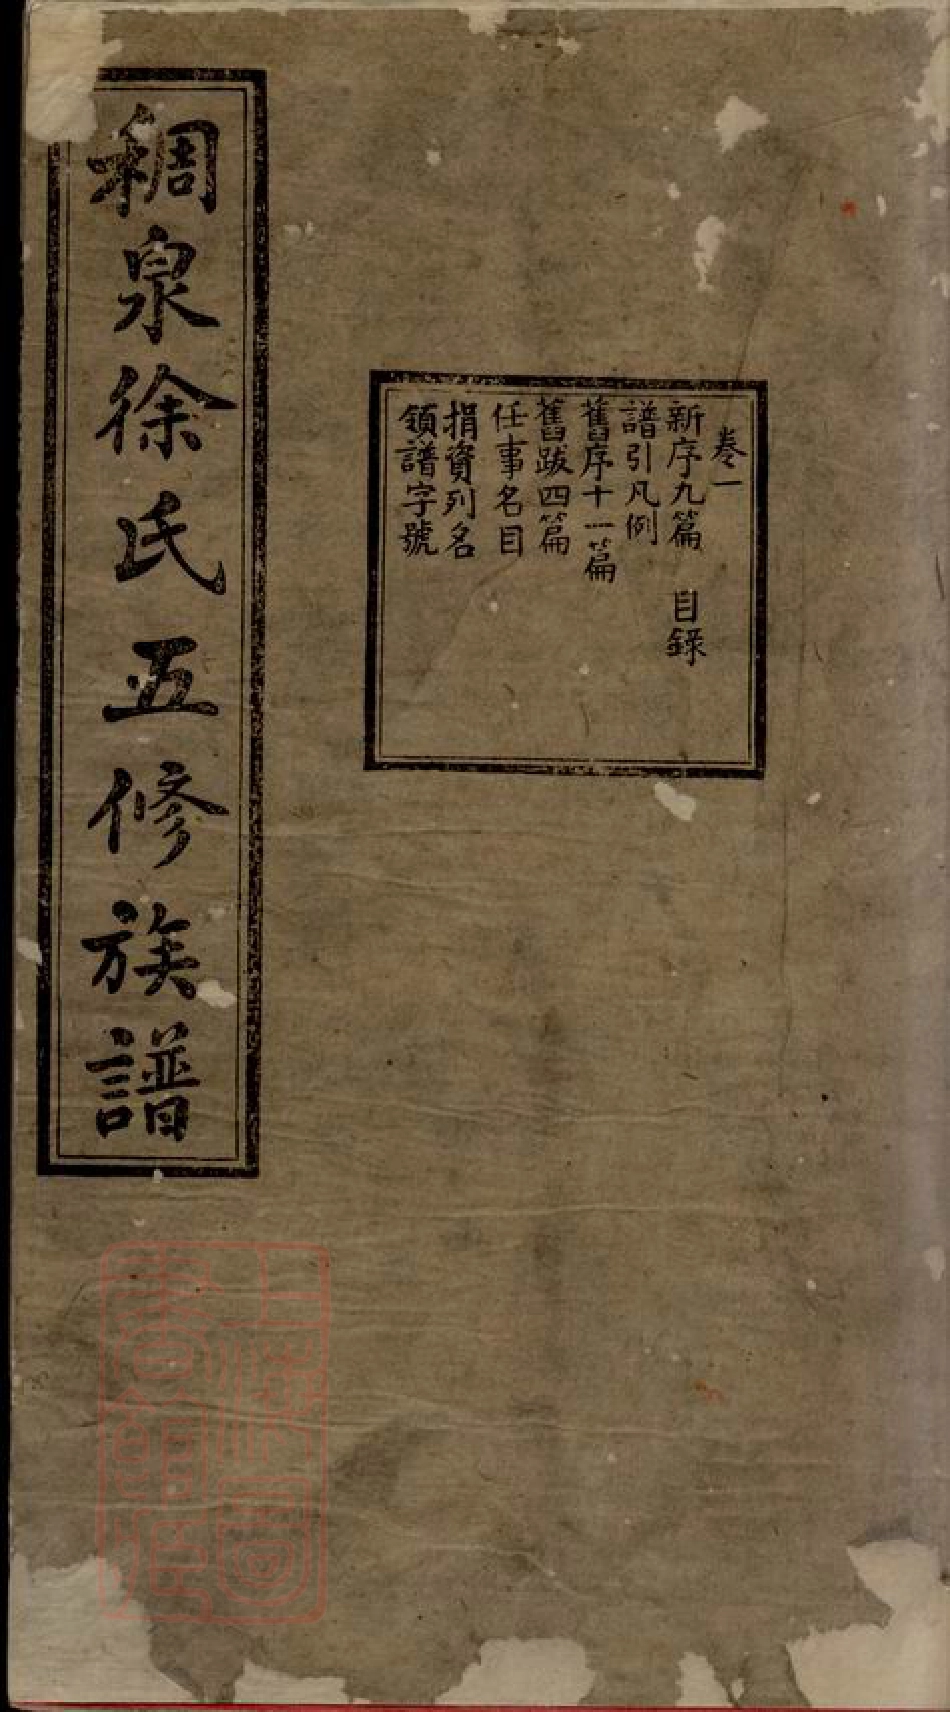 稠泉徐氏五修族譜
卷一
新序九篇 目錄
譜引凡例
舊序十一篇
舊跋四篇
任事名目
捐資列名
領譜字號
上海圖
書館藏